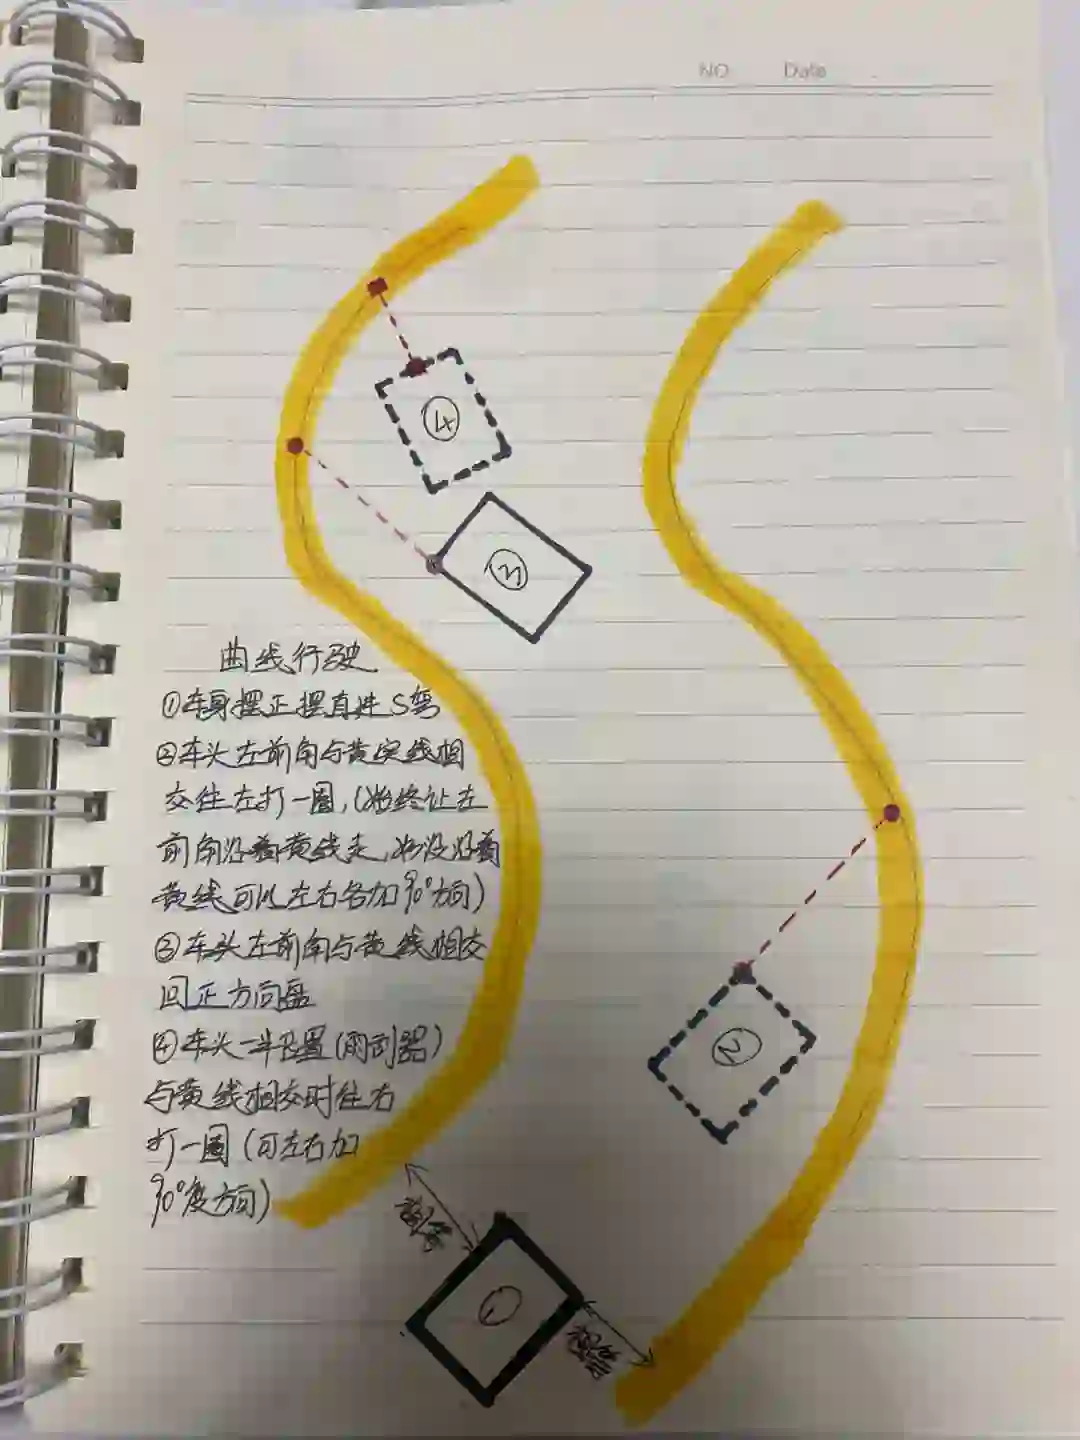 NO.
Date
④
③
曲线行驶
①车身摆正摆直进S弯
②车头左前角与黄实线相
交往左打一圈,(始终让左
前角沿着黄线走,如没沿着
黄线可以左右各加90°方向)
③车头左前角与黄线相交
回正方向盘
④车头一半位置(雨刮器)
与黄线相交时往右
打一圈(可左右加
90°度方向)
②
相等
①
相等